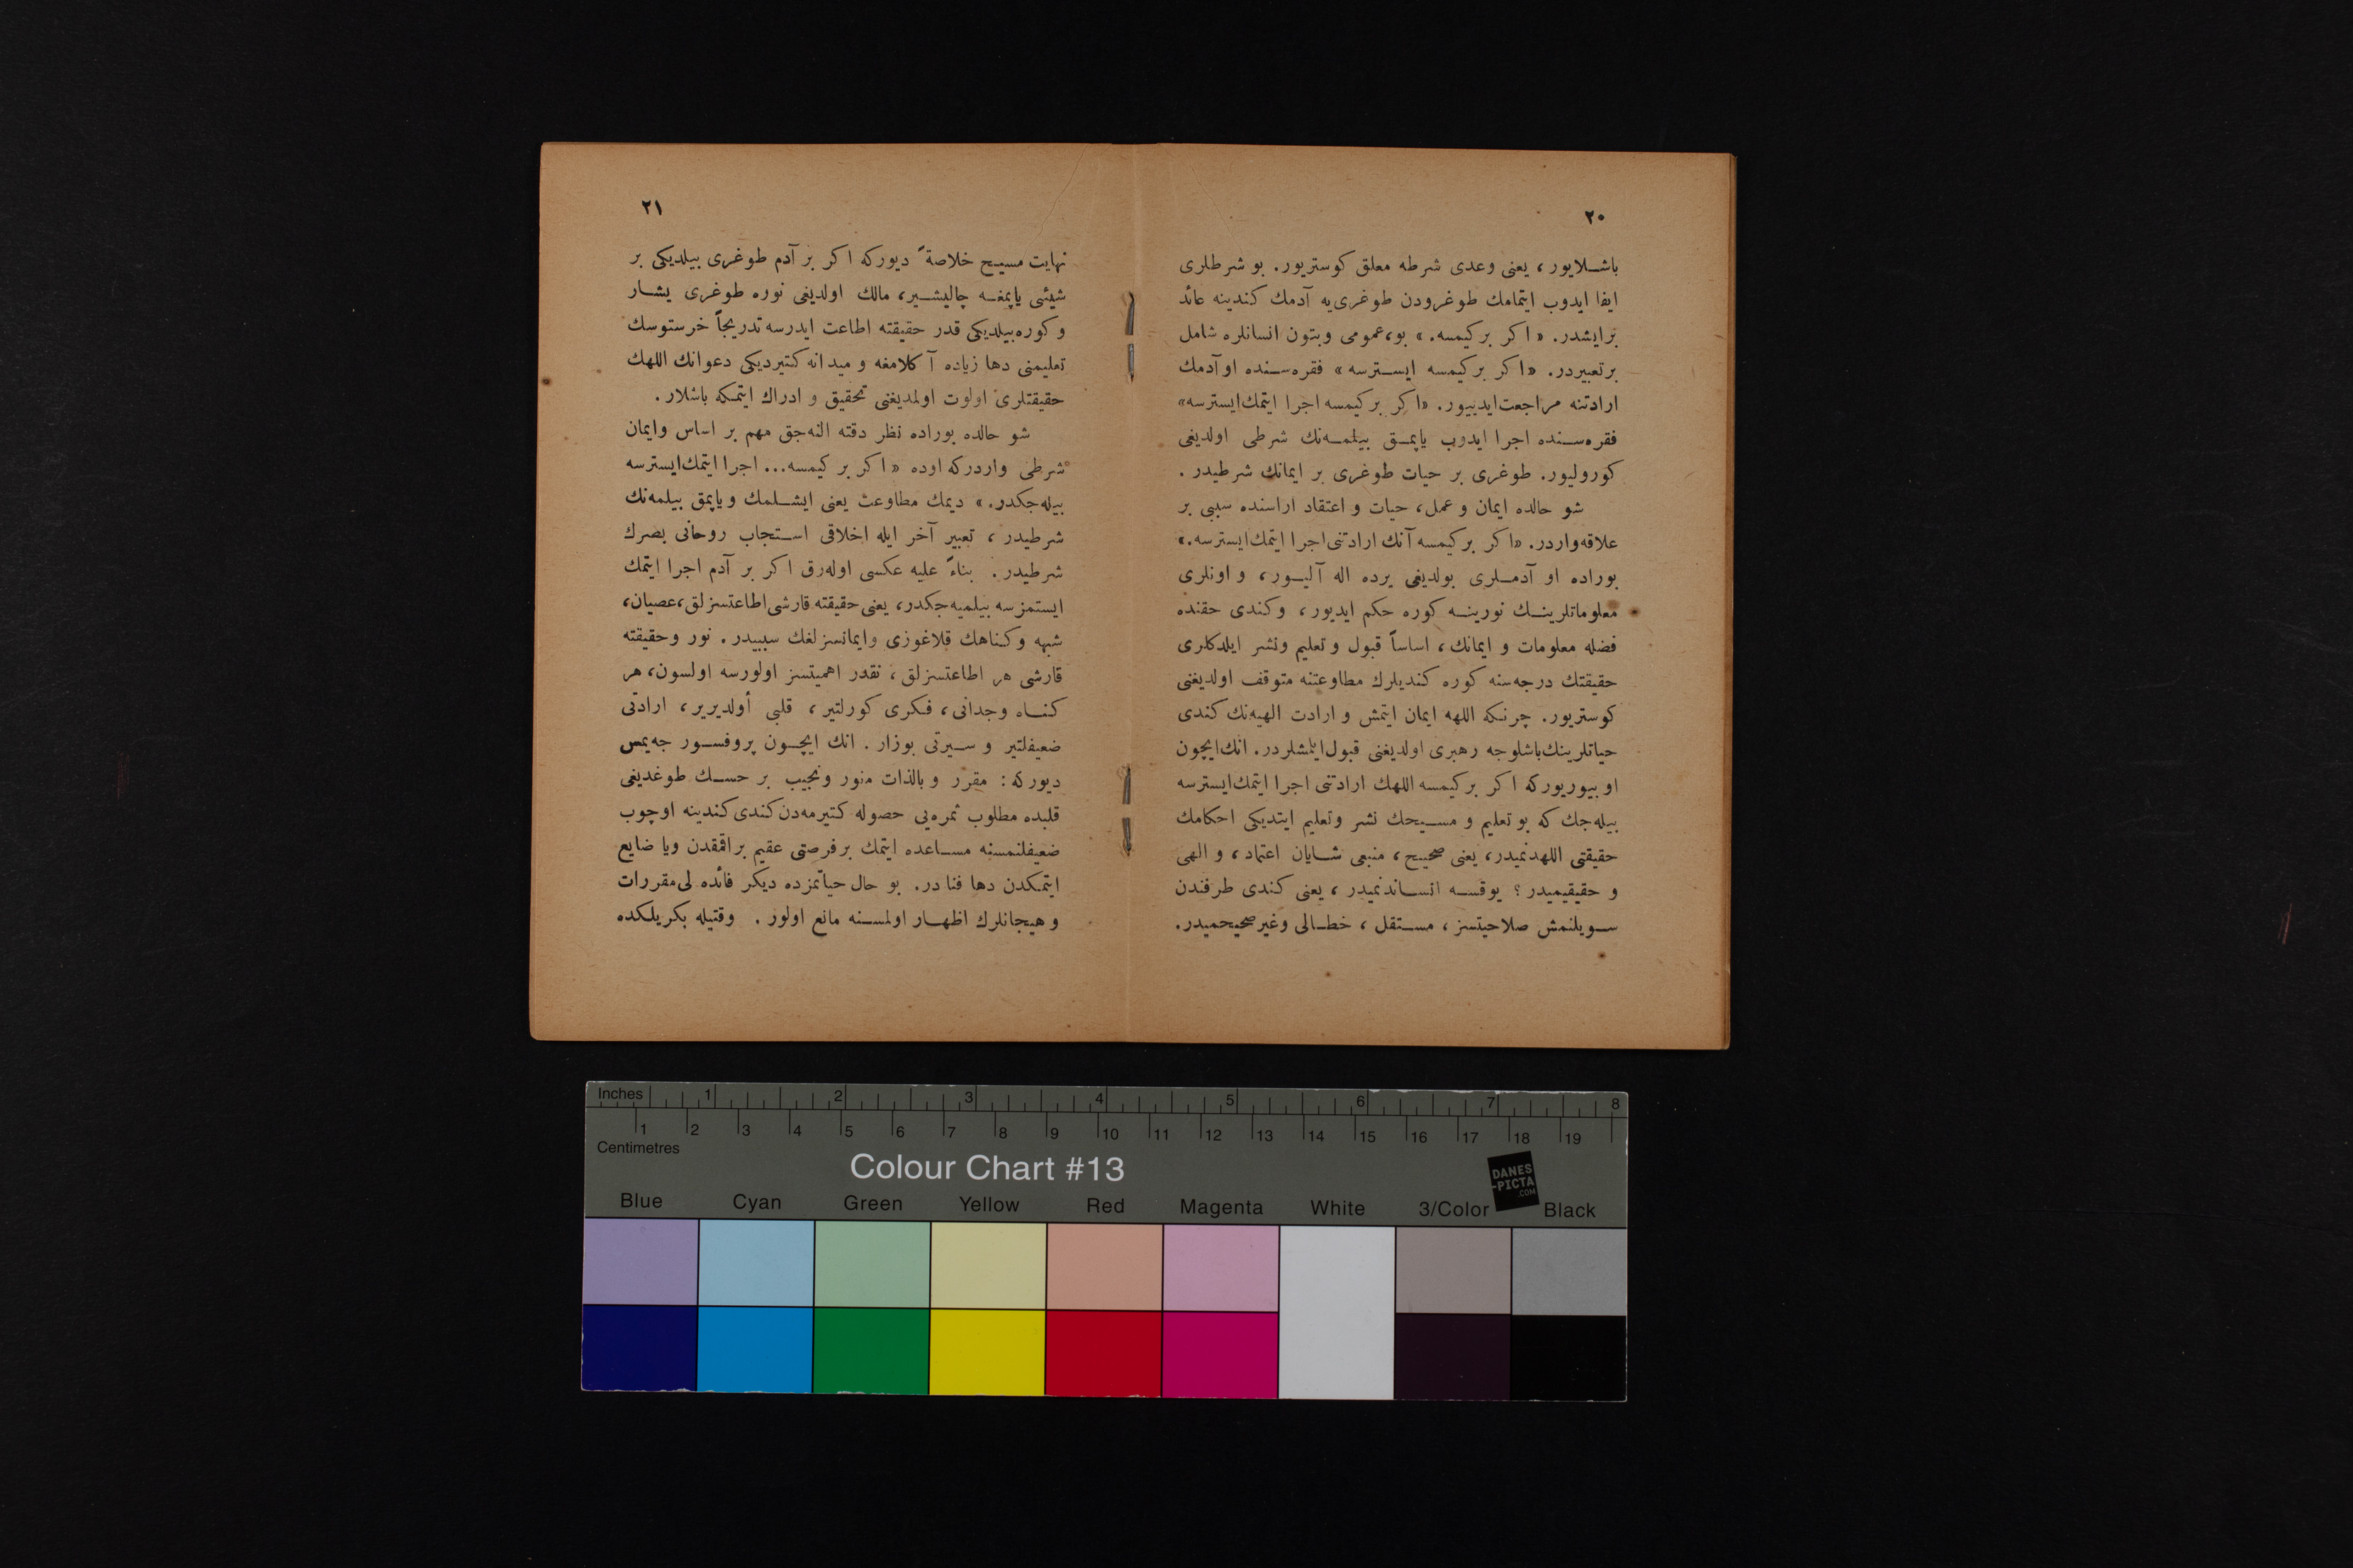 ٢٠
باشلایور، یعنی وعدی شرطه معلق کوستریور. بو شرطلری
ایفا ایدوب ایتمامك طوغرودن طوغری یه آدمك کندینه عائد
برایشدر. «اکر برکیمسه.» بو، عمومی وبتون انسانلره شامل
برتعبیردر. «اکر برکیمسه ایسترسه» فقره‌سنده اوآدمك
ارادتنه مراجعت ایدییور. «اکر برکیمسه اجرا ایتمك ایسترسه»
فقره‌سنده اجرا ایدوب یاپمق بیلمه‌نك شرطی اولدیغی
کورولیور. طوغری بر حیات طوغری بر ایمانك شرطیدر.
شو حالده ایمان و عمل، حیات و اعتقاد اراسنده سببی بر
علاقه واردر. «اکر برکیمسه آنك ارادتنی اجرا ایتمك ایسترسه.»
بوراده او آدملری بولدیغی یرده اله آلیور، و اونلری
معلوماتلرینك نورینه کوره حکم ایدیور، وکندی حقنده
فضله معلومات و ایمانك، اساساً قبول و تعلیم ونشر ایلدکلری
حقیقتك درجه‌سنه کوره کندیلرك مطاوعتنه متوقف اولدیغنی
کوستریور. چرنکه اللهه ایمان ایتمش و ارادت الهیه‌نك کندی
حیاتلرینك باشلوجه رهبری اولدیغنی قبول ایتمشلردر. انك ایچون
او بیوریورکه اکر برکیمسه اللهك ارادتنی اجرا ایتمك ایسترسه
بیله‌جك که بو تعلیم و مسیحك نشر وتعلیم ایتدیکی احکامك
حقیقتی اللهدنمیدر، یعنی صحیح، منبعی شایان اعتماد، و الهی
و حقیقیمیدر؟ یوقسه انساندنمیدر، یعنی کندی طرفندن
سویلنمش صلاحیتسز، مستقل، خطالی وغیر صحیحمیدر.
٢١
نهایت مسیح خلاصةً دیورکه اکر بر آدم طوغری بیلدیکی بر
شیئی یاپمغه چالیشیر، مالك اولدیغی نوره طوغری یشار
و کوره بیلدیکی قدر حقیقته اطاعت ایدرسه تدریجاً خرستوسك
تعلیمنی دها زیاده آکلامغه و میدانه کتیردیکی دعوانك اللهك
حقیقتلری اولوت اولمدیغنی تحقیق و ادراك ایتمکه باشلار.
شو حالده بوراده نظر دقته النه‌جق مهم بر اساس وایمان
شرطی واردرکه اوده «اکر بر کیمسه... اجرا ایتمك ایسترسه
بیله‌جکدر.» دیمك مطاوعت یعنی ایشلمك ویاپمق بیلمه‌نك
شرطیدر، تعبیر آخر ایله اخلاقی استجاب روحانی بصرك
شرطیدر. بناءً علیه عکسی اوله‌رق اکر بر آدم اجرا ایتمك
ایستمزسه بیلمیه‌جکدر، یعنی حقیقته قارشی اطاعتسزلق، عصیان،
شبهه وکناهك قلاغوزی وایمانسزلغك سببیدر. نور وحقیقته
قارشی هر اطاعتسزلق، نقدر اهمیتسز اولورسه اولسون، هر
کناه وجدانی، فکری کورلتیر، قلبی أولدیریر، ارادتی
ضعیفلتیر و سیرتی بوزار. انك ایچون پروفسور جه‌یمس
دیورکه: مقرر و بالذات منور ونجیب بر حسك طوغدیغی
قلبده مطلوب ثمره‌یی حصوله کتیرمه‌دن کندی کندینه اوچوب
ضعیفلنمسنه مساعده ایتمك برفرصتی عقیم براقمقدن ویا ضایع
ایتمکدن دها فنا در. بو حال حیاتمزده دیکر فائده لی مقررات
و هیجانلرك اظهار اولمسنه مانع اولور. وقتیله بکریلکده
Inches 1 2 3 4 5 6 7 8
1 2 3 4 5 6 7 8 9 10 11 12 13 14 15 16 17 18 19
Centimetres
Colour Chart #13
DANES
-PICTA
.COM
Blue Cyan Green Yellow Red Magenta White 3/Color Black